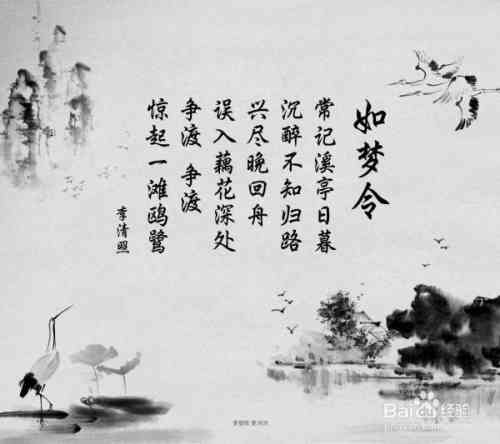 如梦令
常记溪亭日暮
沉醉不知归路
兴尽晚回舟
误入藕花深处
争渡 争渡
惊起一滩鸥鹭
李清照
Baidu经验